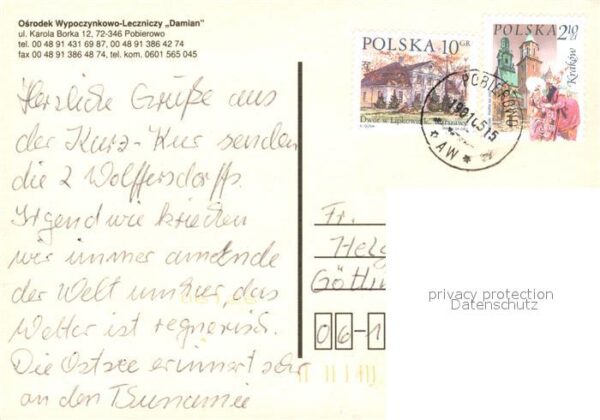 Ośrodek Wypoczynkowo-Leczniczy „Damian"
ul. Karola Borka 12, 72-346 Pobierowo
tel. 00 48 91 431 69 87, 00 48 91 386 42 74
fax 00 48 91 386 48 74, tel. kom. 0601 565 045
Herzliche Grüße aus
der Kurz-Kur senden
die 2 Wolffersdorffs.
Irgendwie kriechen
wir immer am Ende
der Welt umher, das
Wetter ist regnerisch.
Die Ostsee erinnert sehr
an den Tsunamie
POLSKA 10 GR
Dwór w Lipkowie k. Warszawy
POLSKA 2,10 ZŁ
Kraków
POBIEROWO
AW
Fr.
Helg
Götti
06-1
privacy protection
Datenschutz